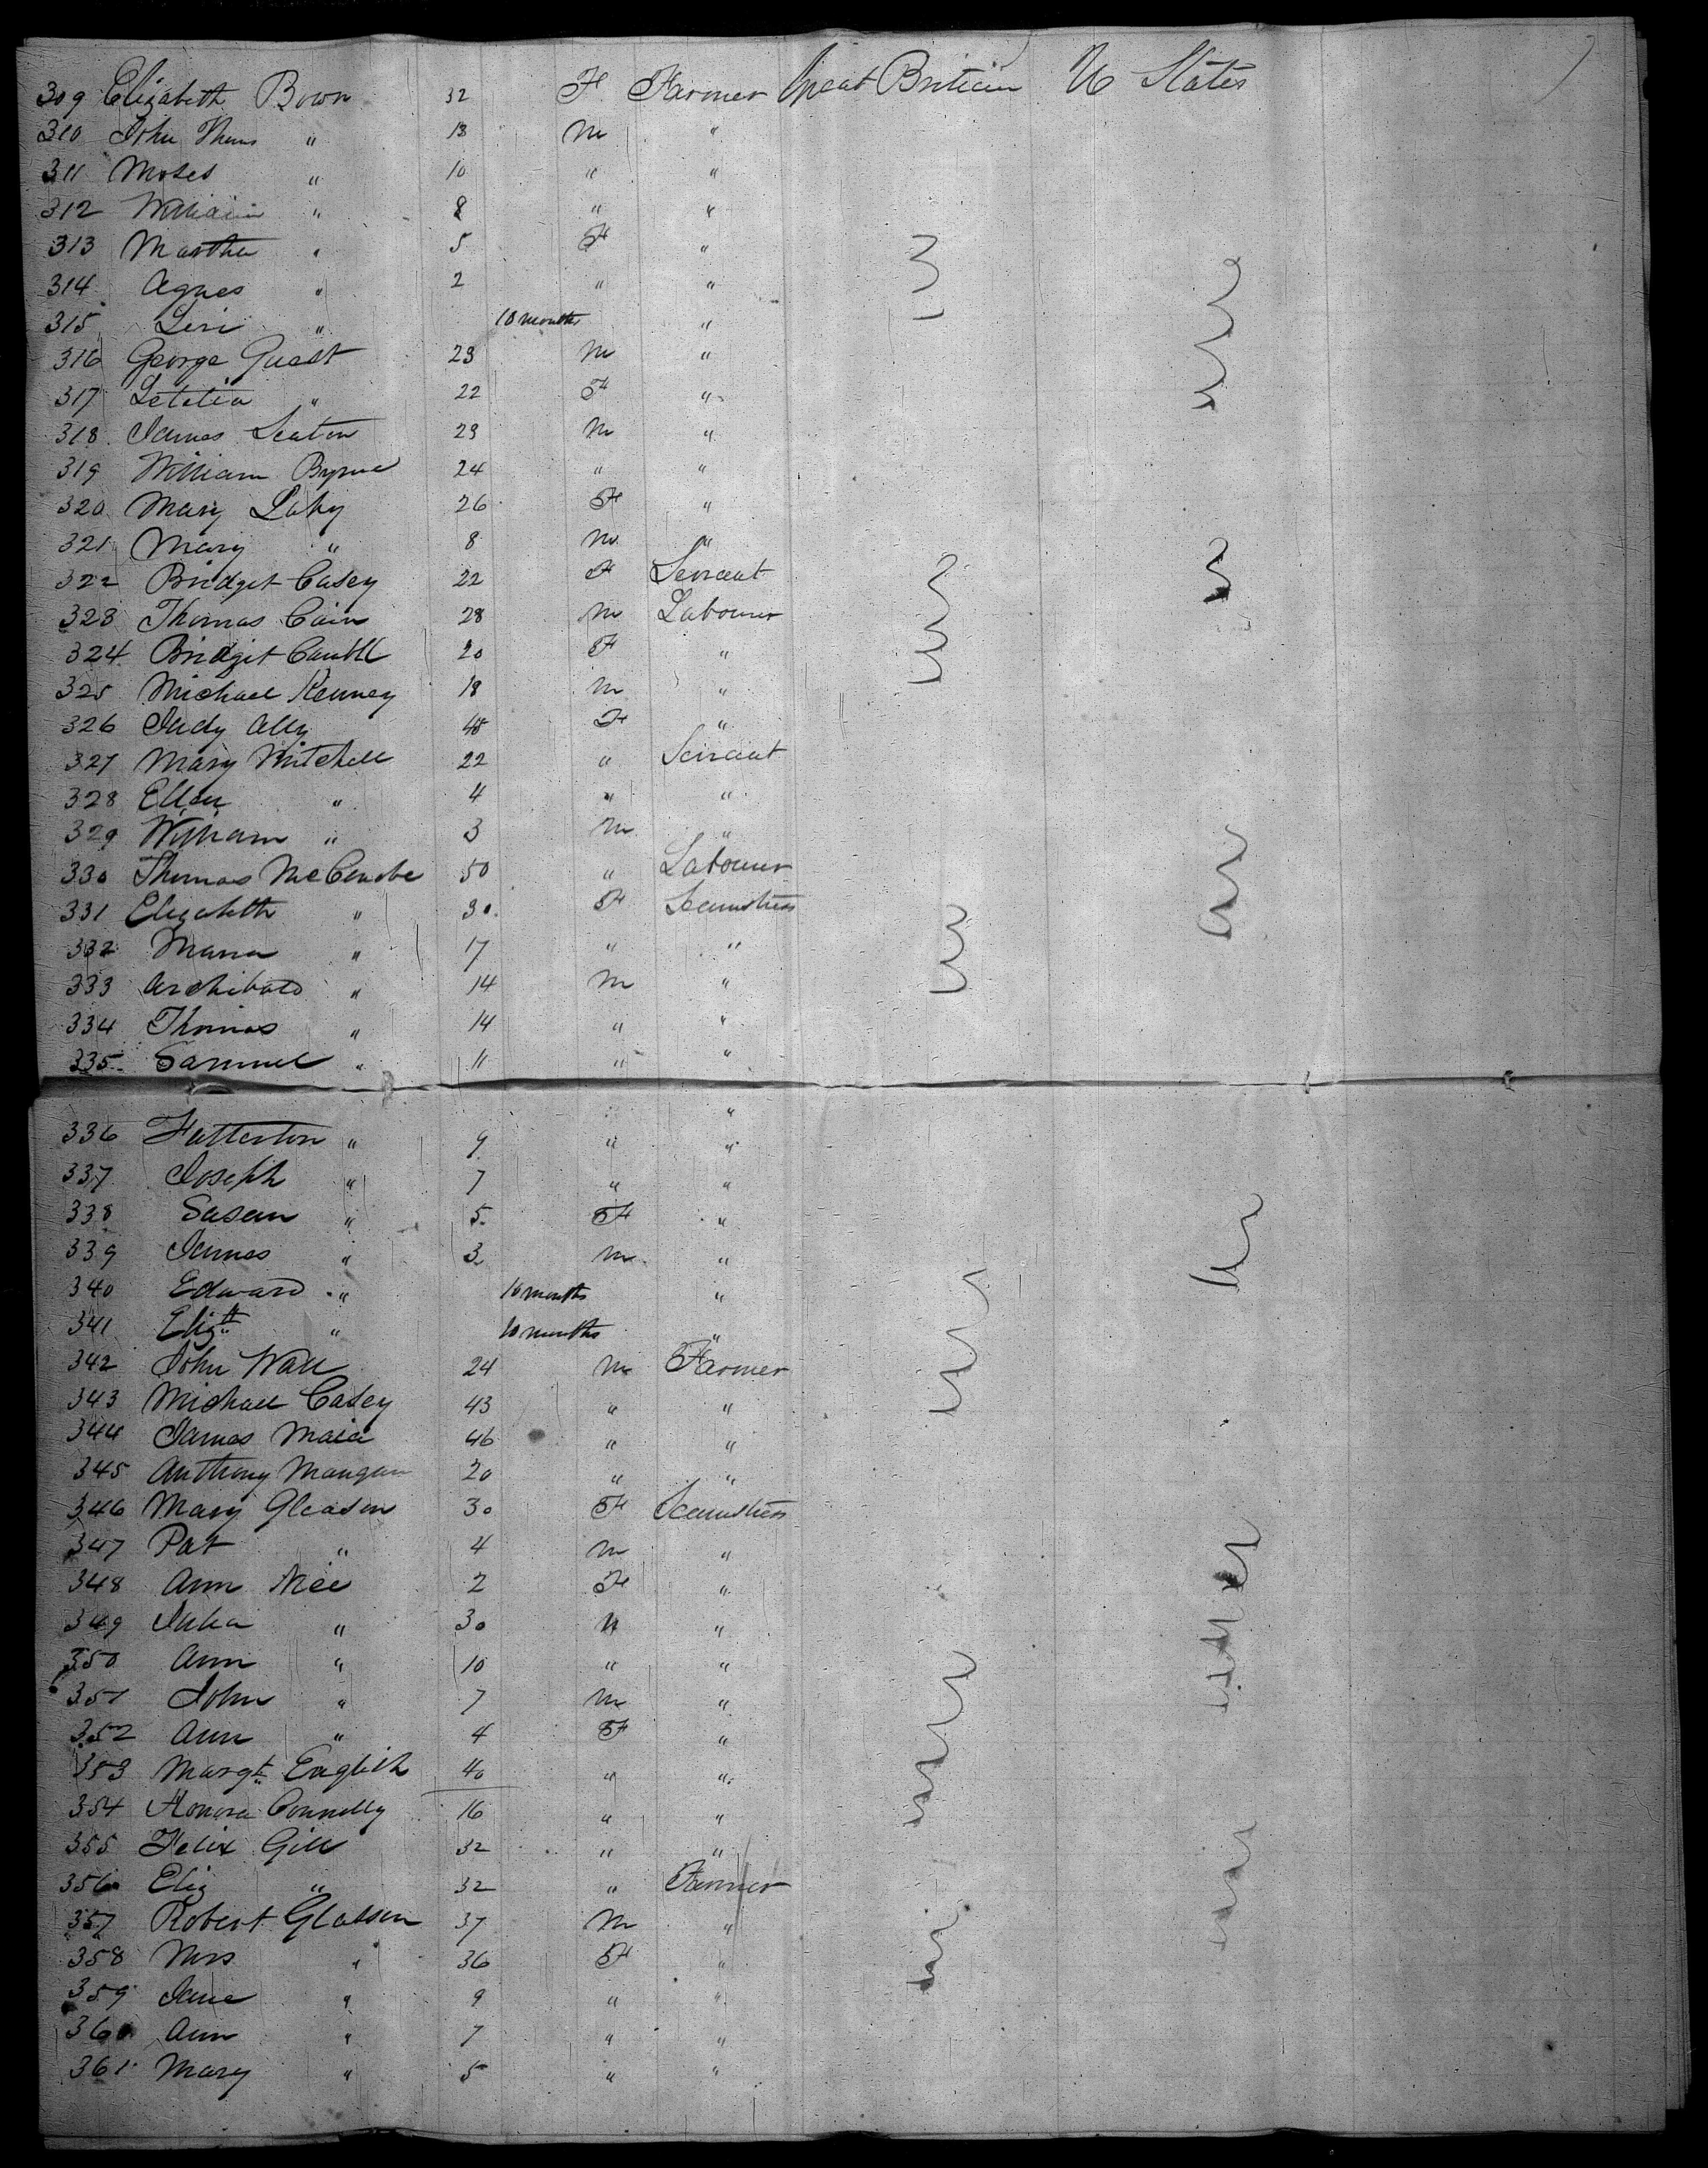 309 Elizabeth Bown 32 F Farmer Great Britian U States
310 John Thos " 13 m "
311 Moses " 10 " "
312 William " 8 " "
313 Martha " 5 F "
314 Agnes " 2 " "
315 Levi " 10 months "
316 George Guest 23 m "
317 Letetia " 22 F "
318 James Seaton 23 m "
319 William Byrne 24 " "
320 Mary Lahy 26 F "
321 Mary " 8 m "
322 Bridget Casey 22 F Servant
323 Thomas Cain 28 m Labourer
324 Bridgit 20 F "
325 Michael Kenney 18 m "
326 Judy Ally F "
327 Mary Mitchell 22 " Servant
328 Ellen " 4 " "
329 William " 3 m "
330 Thomas 50 " Labourer
331 Elizabeth " 30 F Seamstress
332 Maria " 17 " "
333 Archibald " 14 m "
334 Thomas " 14 " "
335 Samuel " 11 " "
" "
336 Fatterton " 9 " "
337 Joseph " 7 " "
338 Susan " 5 F "
339 James " 3 m "
340 Edward " 10 months "
341 Elizth " 10 months "
342 John Wall 24 m Farmer
343 Michael Casey 43 " "
344 James 46 " "
345 Anthony Mangan 20 " "
346 Mary Gleason 30 F Seamstress
347 Pat " 4 m "
348 Ann Nee 2 F "
349 Julia " 30 "
350 Ann " 10 " "
351 John " 7 m "
352 Ann " 4 F "
353 Margt English 40 " "
354 Honora Connelly 16 " "
355 Felix Gill 32 " "
356 Eliz " 32 " Farmer
357 Robert Glassen 37 m "
358 Mrs " 36 F "
359 Jane " 9 " "
360 Ann " 7 " "
361 Mary " 5 " "